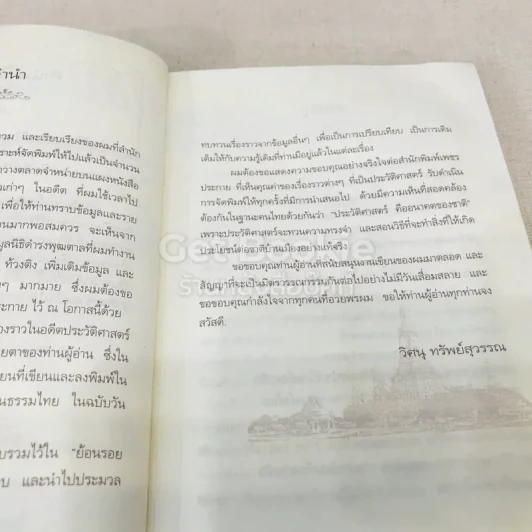 คำนำ
และเรียบเรียงของผมที่สำนัก
เราะห์จัดพิมพ์ให้ไปแล้วเป็นจำนวน
วางตลาดจำหน่ายบนแผงหนังสือ
เก่าๆ ในอดีต ที่ผมใช้เวลาไป
เพื่อให้ท่านทราบข้อมูลและราย
านมากพอสมควร จะเห็นจาก
มูลนิธิดำรงพุฒตาลที่ผมทำงาน
ท้วงติง เพิ่มเติมข้อมูล และ
ๆ มากมาย ซึ่งผมต้องขอ
ะกาย ไว้ ณ โอกาสนี้ด้วย
องราวในอดีตประวัติศาสตร์
ยตาของท่านผู้อ่าน ซึ่งใน
ยนที่เขียนและลงพิมพ์ใน
นธรรมไทย ในฉบับวัน
บรวมไว้ใน "ย้อนรอย
บ และนำไปประมวล
ทบทวนเรื่องราวจากข้อมูลอื่นๆ เพื่อเป็นการเปรียบเทียบ เป็นการเติม
เต็มให้กับความรู้เดิมที่ท่านมีอยู่แล้วในแต่ละเรื่อง
ผมต้องขอแสดงความขอบคุณอย่างจริงใจต่อสำนักพิมพ์เพชร
ประกาย ที่เห็นคุณค่าของเรื่องราวต่างๆ ที่เป็นประวัติศาสตร์ รับดำเนิน
การจัดพิมพ์ให้ทุกครั้งที่มีการนำเสนอไป ด้วยมีความเห็นที่สอดคล้อง
ต้องกันในฐานะคนไทยด้วยกันว่า "ประวัติศาสตร์ คืออนาคตของชาติ"
เพราะประวัติศาสตร์จะทวนความทรงจำ และสอนวิธีที่จะทำสิ่งที่ให้เกิด
ประโยชน์ต่อชาติบ้านเมืองอย่างแท้จริง
ขอขอบคุณท่านผู้อ่านที่สนับสนุนงานเขียนของผมมาตลอด และ
สัญญาที่จะเป็นมิตรวรรณกรรมกันต่อไปอย่างไม่มีวันเสื่อมสลาย และ
ขอขอบคุณกำลังใจจากทุกคนที่อวยพรผม ขอให้ท่านผู้อ่านทุกท่านจง
สวัสดี.
วิศนุ ทรัพย์สุวรรณ